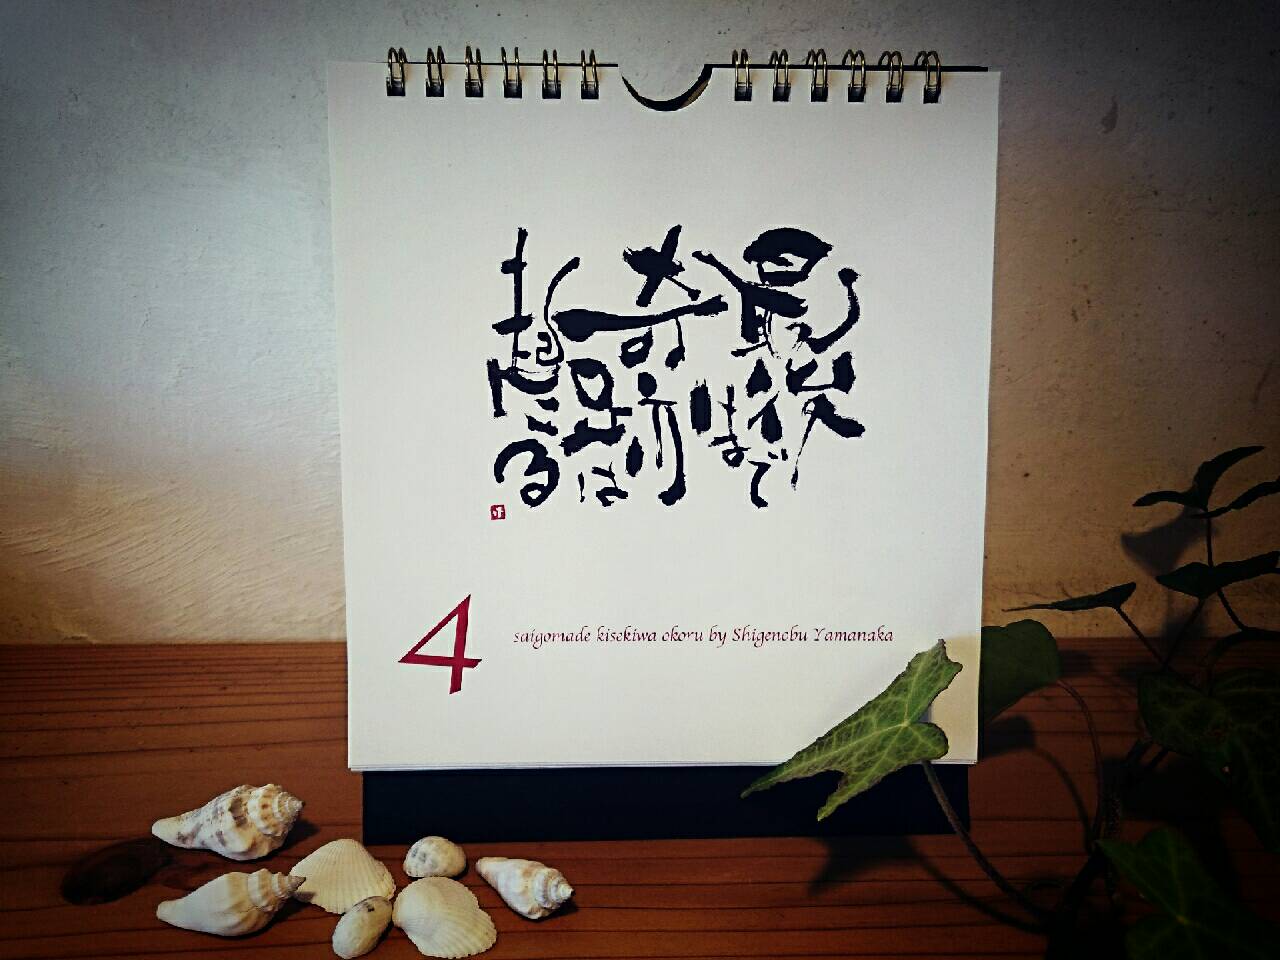 最後まで
奇跡は
起こる
4
saigomade kisekiwa okoru by Shigenobu Yamanaka